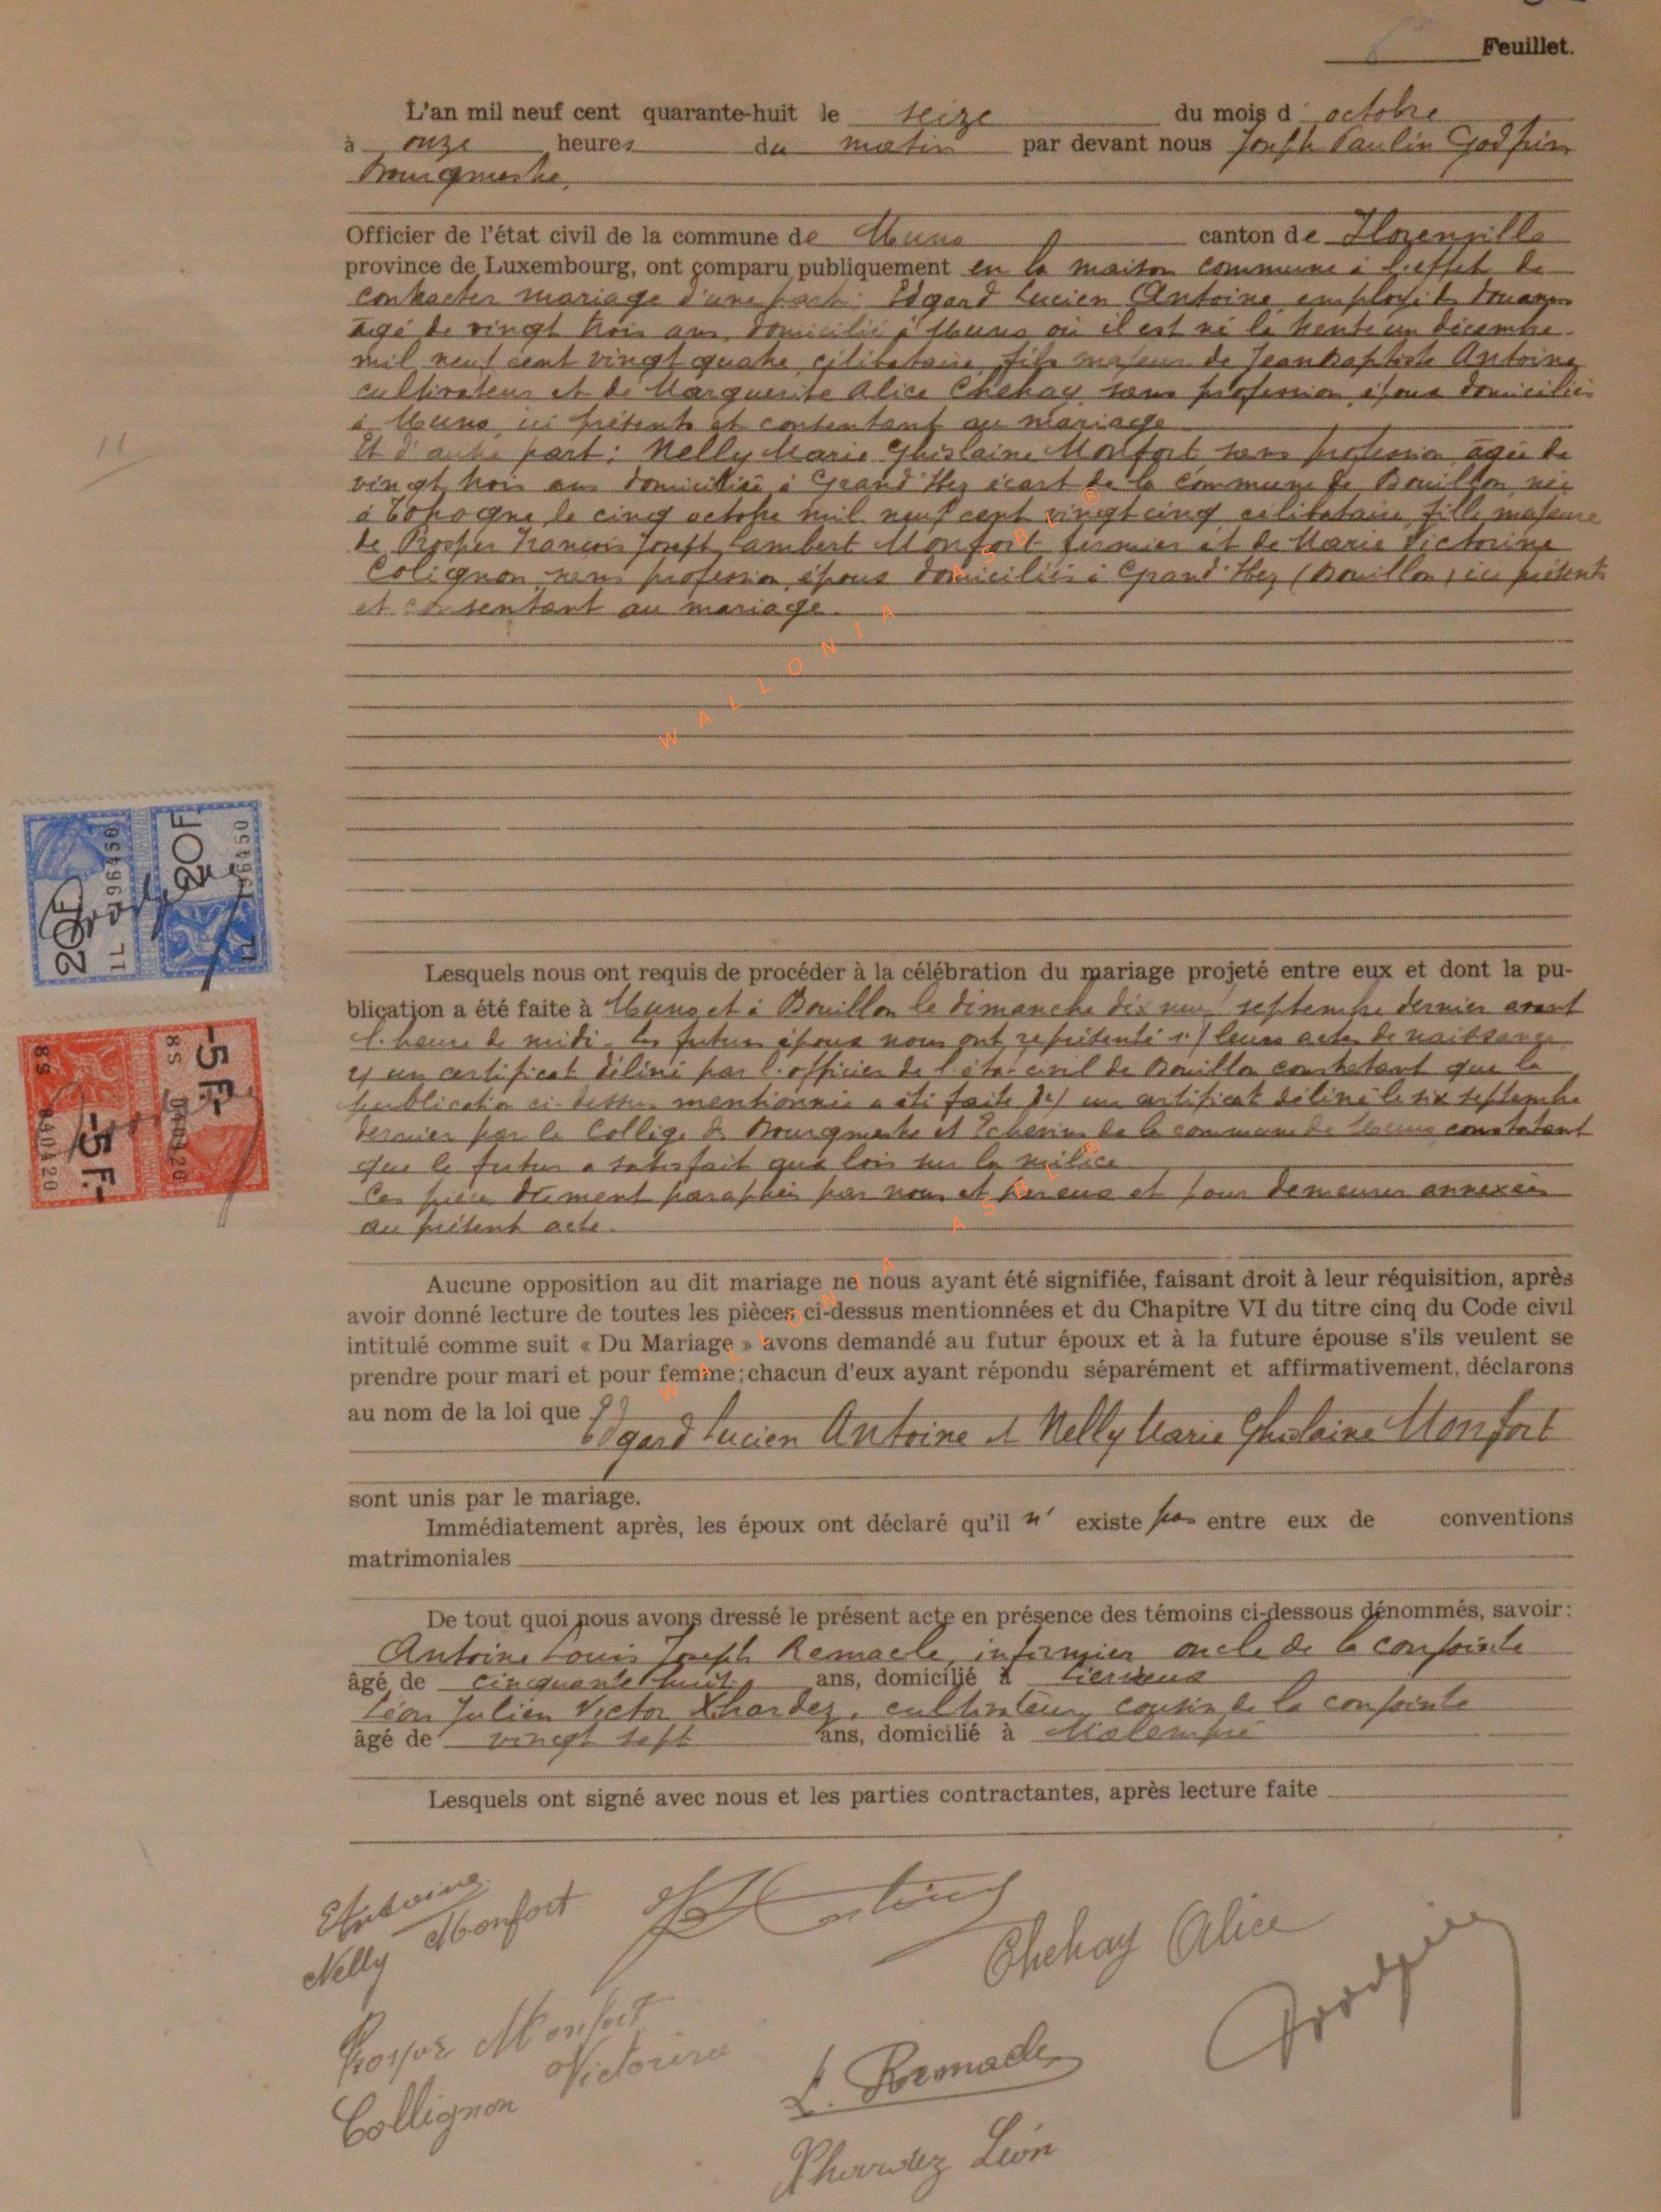 Feuillet.
L'an mil neuf cent quarante-huit le seize du mois d' octobre
à onze heures du matin par devant nous Joseph Paulin Godfrin
Bourgmestre,
Officier de l'état civil de la commune de Muno canton de Florenville
province de Luxembourg, ont comparu publiquement en la maison commune à l'effet de
contracter mariage d'une part: Edgard Lucien Antoine employé des douanes
âgé de vingt trois ans, domicilié à Muno où il est né le trente un décembre
mil neuf cent vingt quatre, célibataire, fils majeur de Jean Baptiste Antoine
cultivateur et de Marguerite Alice Chehay, sans profession, époux domiciliés
à Muno, ici présents et consentant au mariage
Et d'autre part: Nelly Marie Ghislaine Monfort sans profession, âgée de
vingt trois ans domiciliée à Grand'Hez écart de la commune de Bouillon, née
à le cinq octobre mil neuf cent vingt cinq, célibataire, fille majeure
de Prosper François Joseph Lambert Monfort, fermier et de Marie Victorine
Colignon, sans profession, époux domiciliés à Grand'Hez (Bouillon) ici présents
et consentant au mariage.
20F 20F
1L 196450
-5F.- -5F.-
8S 840420
11
Lesquels nous ont requis de procéder à la célébration du mariage projeté entre eux et dont la pu-
blication a été faite à Muno et à Bouillon le dimanche dix neuf septembre dernier avant
l'heure de midi. les futurs époux nous ont représenté 1°/ leurs actes de naissance
2/ un certificat délivré par l'officier de l'état-civil de Bouillon constatant que la
publication ci-dessus mentionnée a été faite 3°/ un certificat délivré le six septembre
dernier par le Collège des Bourgmestre et Echevins de la commune de Muno constatant
que le futur a satisfait aux lois sur la milice.
Ces pièces dûment paraphées par nous et par eux et pour demeurer annexées
au présent acte.
Aucune opposition au dit mariage ne nous ayant été signifiée, faisant droit à leur réquisition, après
avoir donné lecture de toutes les pièces ci-dessus mentionnées et du Chapitre VI du titre cinq du Code civil
intitulé comme suit « Du Mariage » avons demandé au futur époux et à la future épouse s'ils veulent se
prendre pour mari et pour femme; chacun d'eux ayant répondu séparément et affirmativement, déclarons
au nom de la loi que
Edgard Lucien Antoine et Nelly Marie Ghislaine Monfort
sont unis par le mariage.
Immédiatement après, les époux ont déclaré qu'il n' existe pas entre eux de conventions
matrimoniales
De tout quoi nous avons dressé le présent acte en présence des témoins ci-dessous dénommés, savoir:
Antoine Louis Joseph Remacle, infirmier oncle de la conjointe
âgé de cinquante huit ans, domicilié à Lierneux
Léon Julien Victor Xhardez, cultivateur, cousin de la conjointe
âgé de vingt sept ans, domicilié à Malempré
Lesquels ont signé avec nous et les parties contractantes, après lecture faite
EAntoine
Nelly Monfort
Chehay Alice
Godfrin
Prosper Monfort
Collignon Victorine
L. Remacle
Xhardez Léon
WALLONIA ASBL ®
WALLONIA ASBL ®